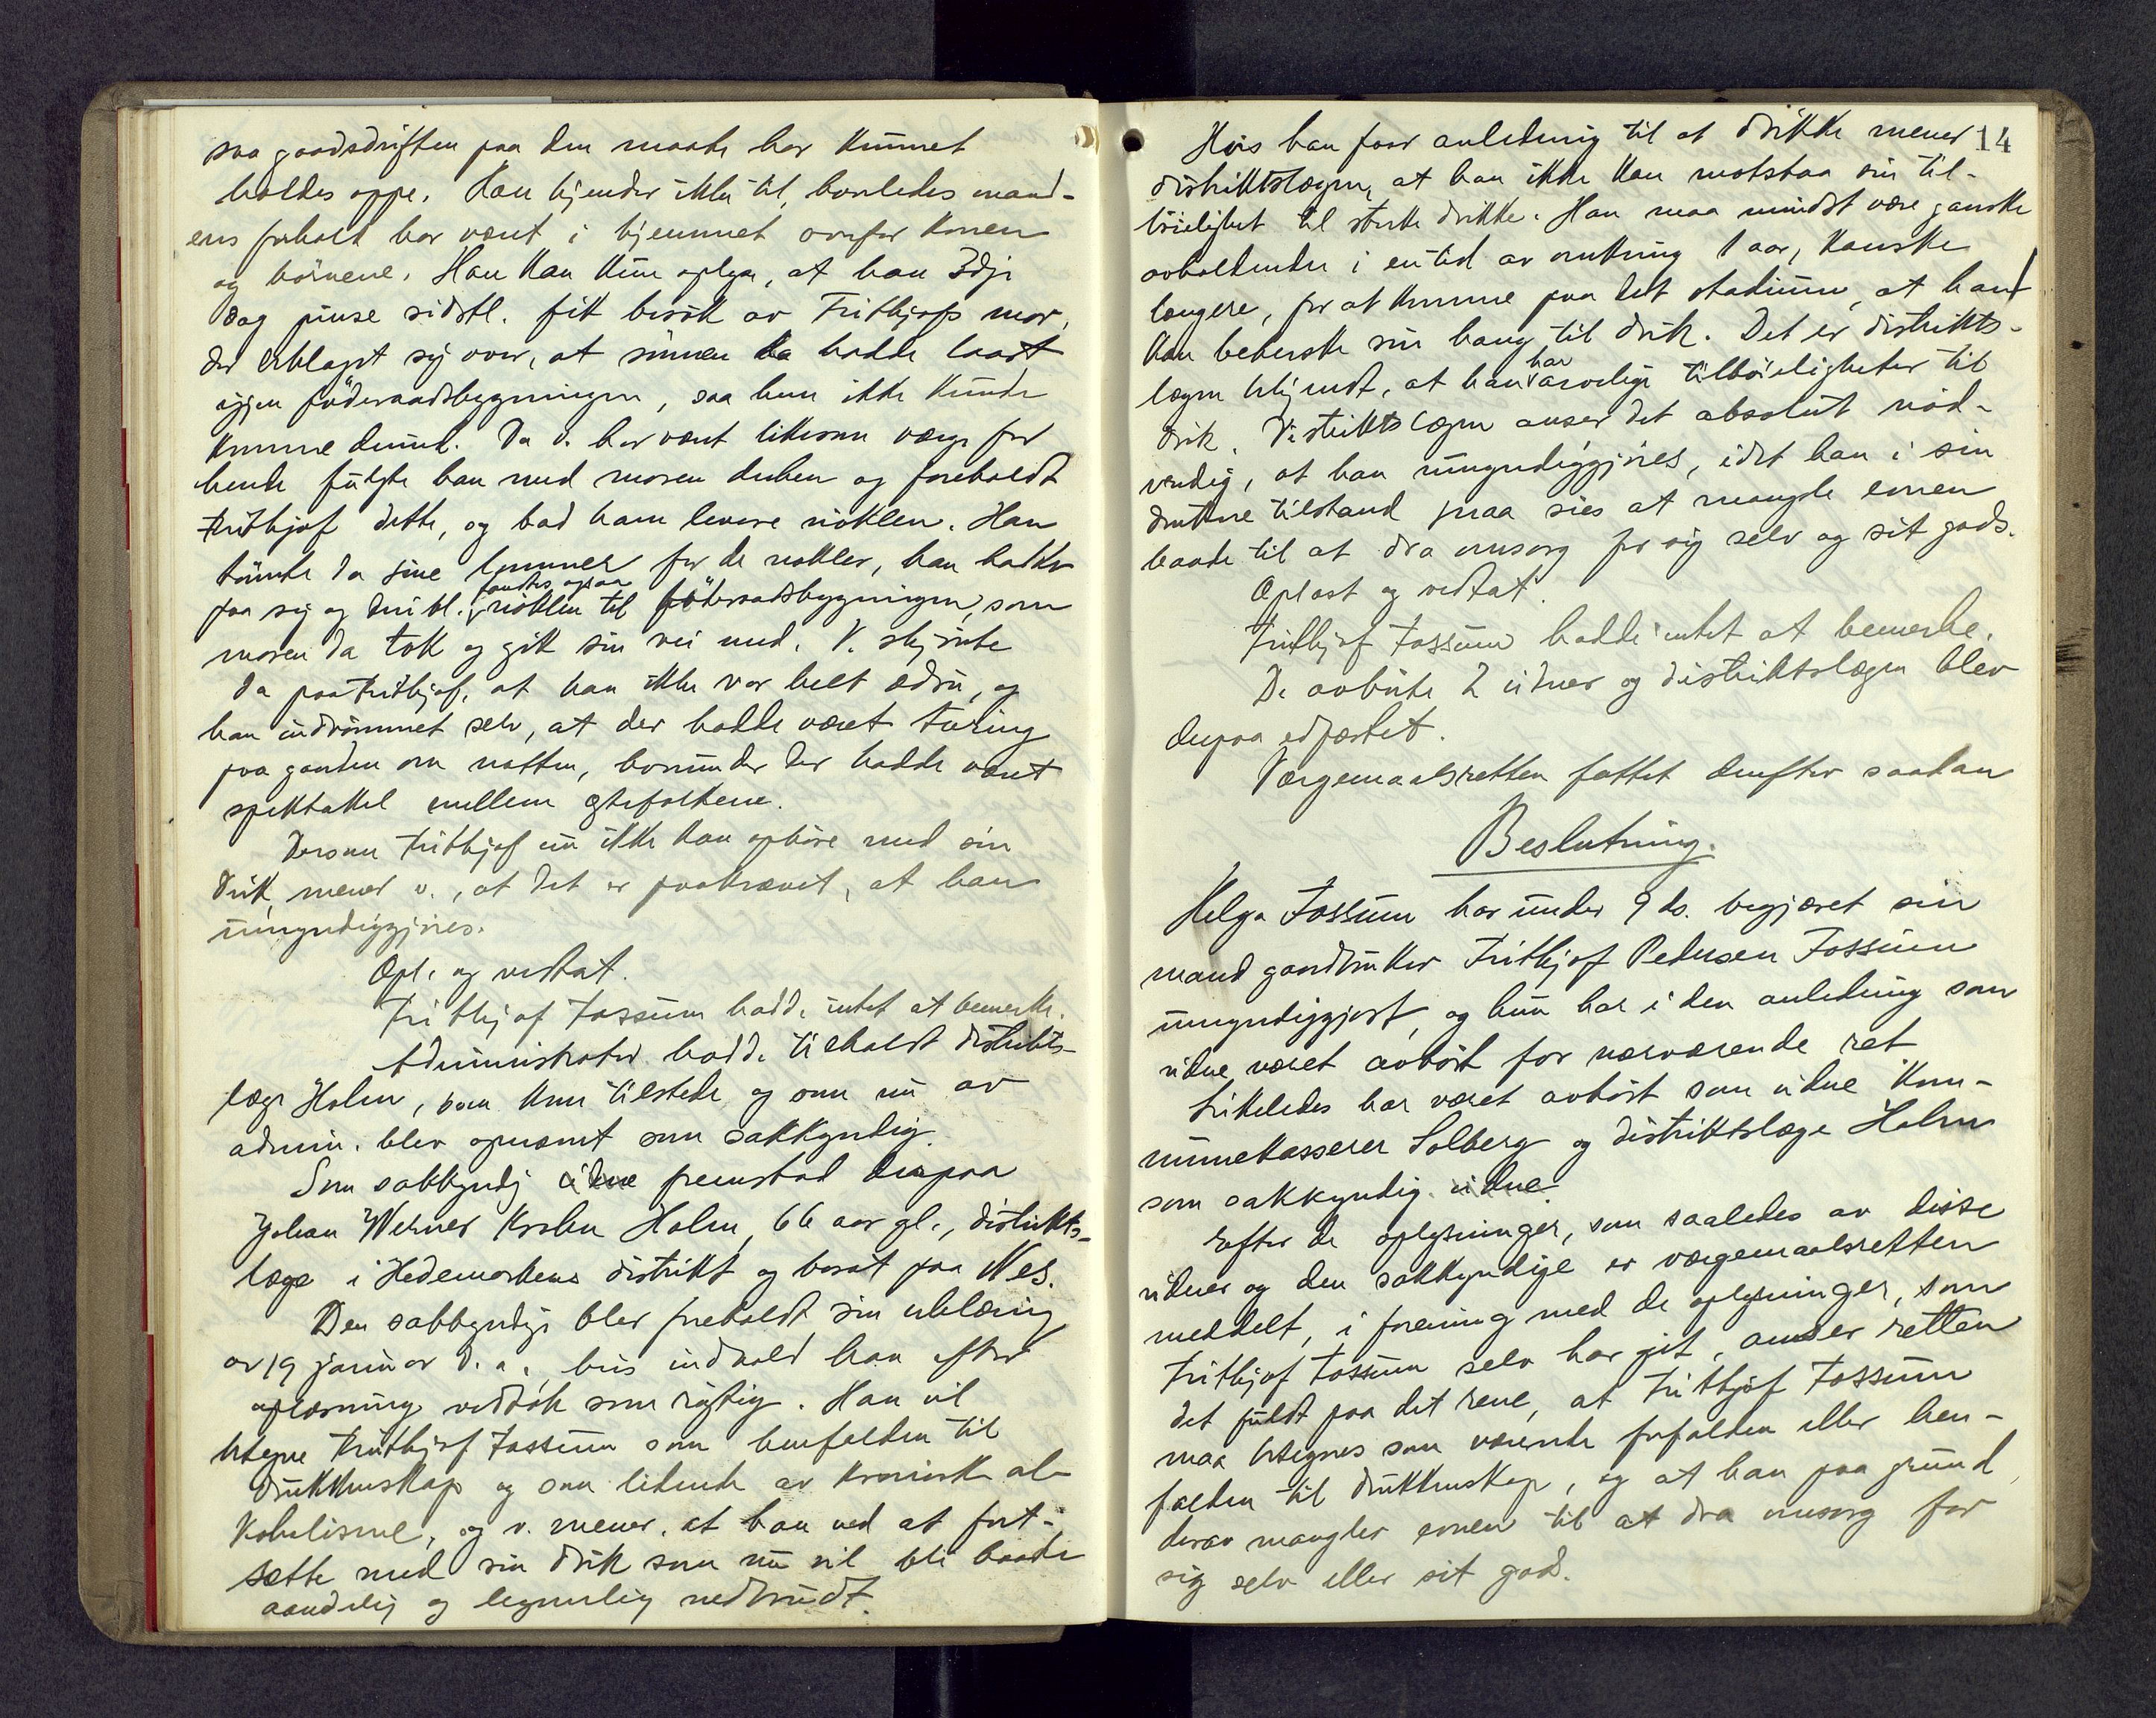 saa gaardsdriften paa den maate har kunnet
holdes oppe. Han kjender ikke til, hvorledes mand-
ens forhold har været i hjemmet overfor konen
og börnene. Han kan kun oplyse, at han 3dje
dag pinse sidstl. fik besök av Frithjofs mor,
der beklaget sig over, at sönnen hadde laast
igjen föderaadsbygningen, saa hun ikke kunde
komme derind. Da v. har været likesom værge for
hende fulgte han med moren derhen og foreholdt
Frithjof dette, og bad ham levere nöklen. Han
tömte da sine lommer for de nökler, han hadde
paa sig og deribl. fandtes ogsaa nöklen til föderaadsbygningen, som
moren da tok og gik sin vei med. V. skjönte
da paa Frithjof, at han ikke var helt ædru, og
han indrömmet selv, at der hadde været turing
paa gaarden om natten, hvorunder der hadde været
spektakkel mellem egtefolkene.
Dersom Frithjof nu ikke kan ophöre med sin
drik, mener v., at det er paakrævet, at han
umyndiggjöres.
Opl. og vedtat.
Frithjof Fossum hadde intet at bemerke.
Administrator hadde tilkaldt distrikts-
læge Holm, som kom tilstede og som nu av
admin. blev opnævnt som sakkyndig.
Som sakkyndig vidne fremstod derpaa
Johan Werner Holm, 66 aar gl., distrikts-
læge i Hedemarkens distrikt og bosat paa Nes.
Den sakkyndige blev foreholdt sin erklæring
av 19 januar d. a., hvis indhold han efter
oplæsning vedtok som rigtig. Han vil
betegne Frithjof Fossum som henfalden til
drukkenskap og som lidende av kronisk al-
koholisme, og v. mener, at han ved at fort-
sætte med sin drik som nu vil bli baade
aandelig og legemlig nedbrudt.
14
Hvis han faar anledning til at drikke mener
distriktslægen, at han ikke kan motstaa sin til-
böielighet til sterke drikke. Han maa mindst være ganske
avholdende i en tid av omkring 1 aar, kanske
længere, for at komme paa det stadium, at han
kan beherske sin hang til drik. Det er distrikts-
lægen bekjendt, at han har arvelige tilböieligheter til
drik. Distriktslægen anser det absolut nöd-
vendig, at han umyndiggjöres, idet han i sin
drukne tilstand maa sies at mangle evnen
baade til at dra omsorg for sig selv og sit gods.
Oplæst og vedtat.
Frithjof Fossum hadde intet at bemerke.
De avhörte 2 vidner og distriktslægen blev
derpaa edfæstet.
Værgemaalsretten fattet derefter saadan
Beslutning.
Helga Fossum har under 9 ds. begjæret sin
mand gaardbruker Frithjof Pedersen Fossum
umyndiggjort, og hun har i den anledning som
vidne været avhört for nærværende ret
Likeledes har været avhört som vidne kom-
munekasserer Solberg og distriktslæge Holm
som sakkyndig vidne.
Efter de oplysninger, som saaledes av disse
vidner og den sakkyndige er værgemaalsretten
meddelt, i forening med de oplysninger, som
Frithjof Fossum selv har git, anser retten
det fuldt paa det rene, at Frithjof Fossum
maa betegnes som værende forfalden eller hen-
falden til drukkenskap, og at han paa grund
derav mangler evnen til at dra omsorg for
sig selv eller sit gods.